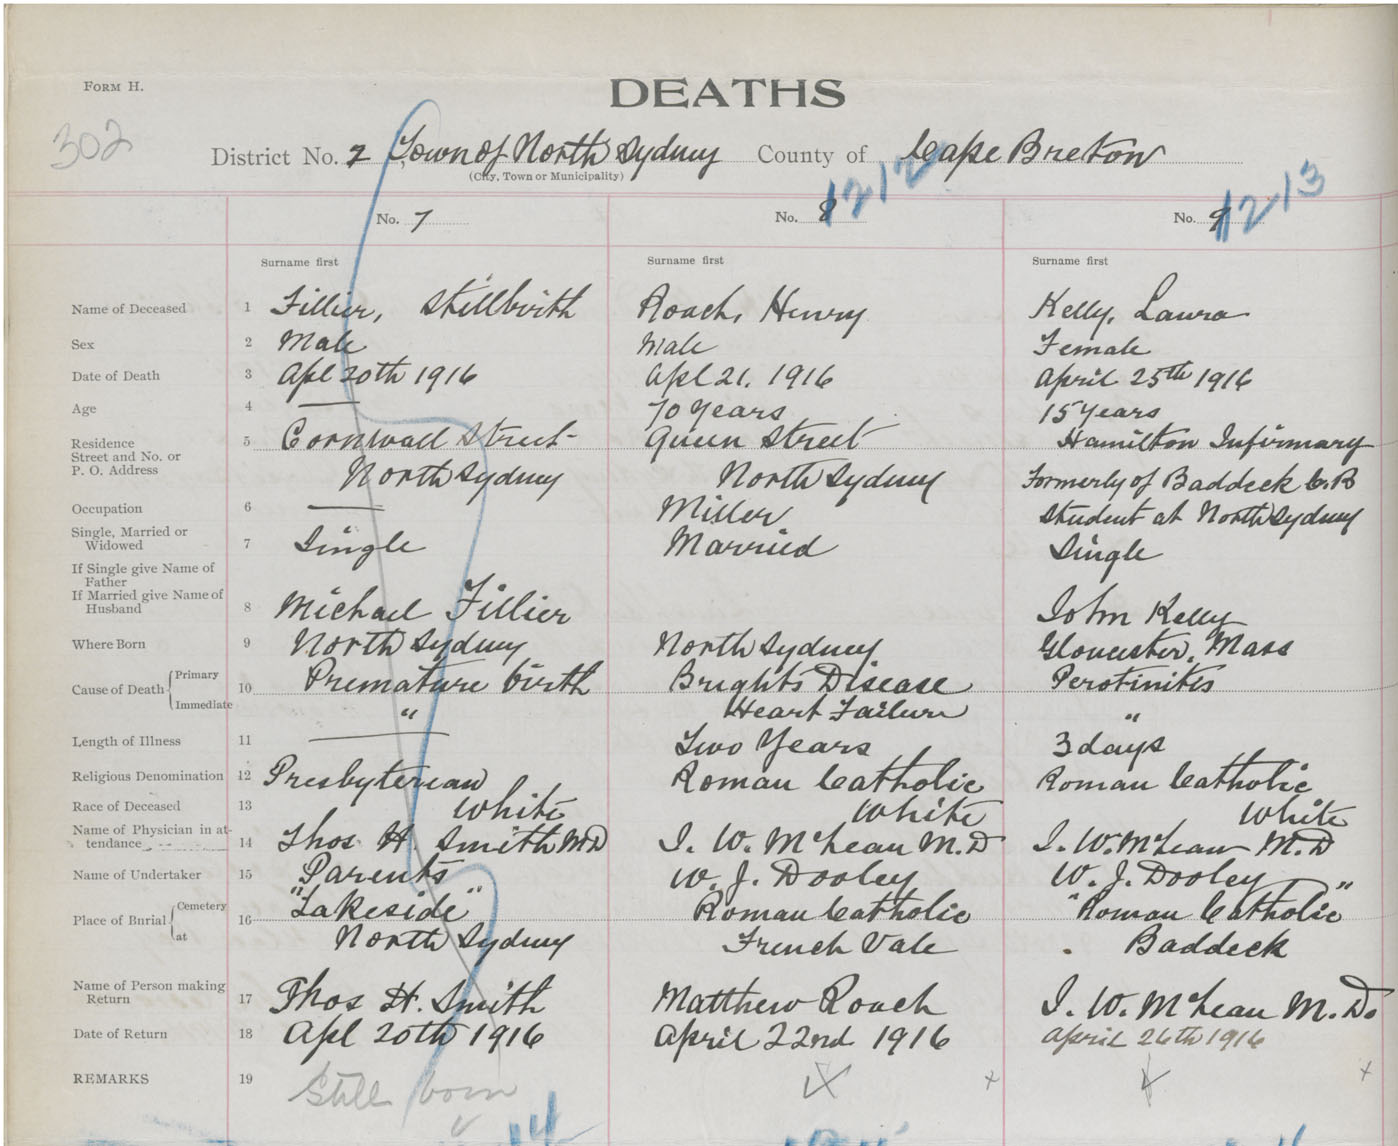 FORM H.
DEATHS
302
District No. 7 Town of North Sydney County of Cape Breton
(City, Town or Municipality)
No. 7 No. 8 1212 No. 9 1213
Surname first Surname first Surname first
Name of Deceased 1 Fillier, Stillbirth Roach, Henry Kelly, Laura
Sex 2 Male Male Female
Date of Death 3 Apl 20th 1916 Apl 21. 1916 April 25th 1916
Age 4 — 70 Years 15 Years
Residence 5 Cornwall Street Queen Street Hamilton Infirmary
Street and No. or
P. O. Address North Sydney North Sydney Formerly of Baddeck C.B
Occupation 6 — Miller Student at North Sydney
Single, Married or
Widowed 7 Single Married Single
If Single give Name of
Father
If Married give Name of
Husband 8 Michael Fillier John Kelly
Where Born 9 North Sydney North Sydney Gloucester, Mass
Cause of Death Primary 10 Premature birth Brights Disease Perotinitis
Immediate " Heart Failure "
Length of Illness 11 — Two Years 3 days
Religious Denomination 12 Presbyterian Roman Catholic Roman Catholic
Race of Deceased 13 White White White
Name of Physician in at-
tendance 14 Thos H. Smith M.D I. W. McLean M.D I. W. McLean M.D
Name of Undertaker 15 Parents W. J. Dooley W. J. Dooley
Place of Burial Cemetery 16 "Lakeside" Roman Catholic "Roman Catholic"
at North Sydney French Vale Baddeck
Name of Person making
Return 17 Thos H. Smith Matthew Roach I. W. McLean M.D.
Date of Return 18 Apl 20th 1916 April 22nd 1916 April 26th 1916
REMARKS 19 Still born x x
14